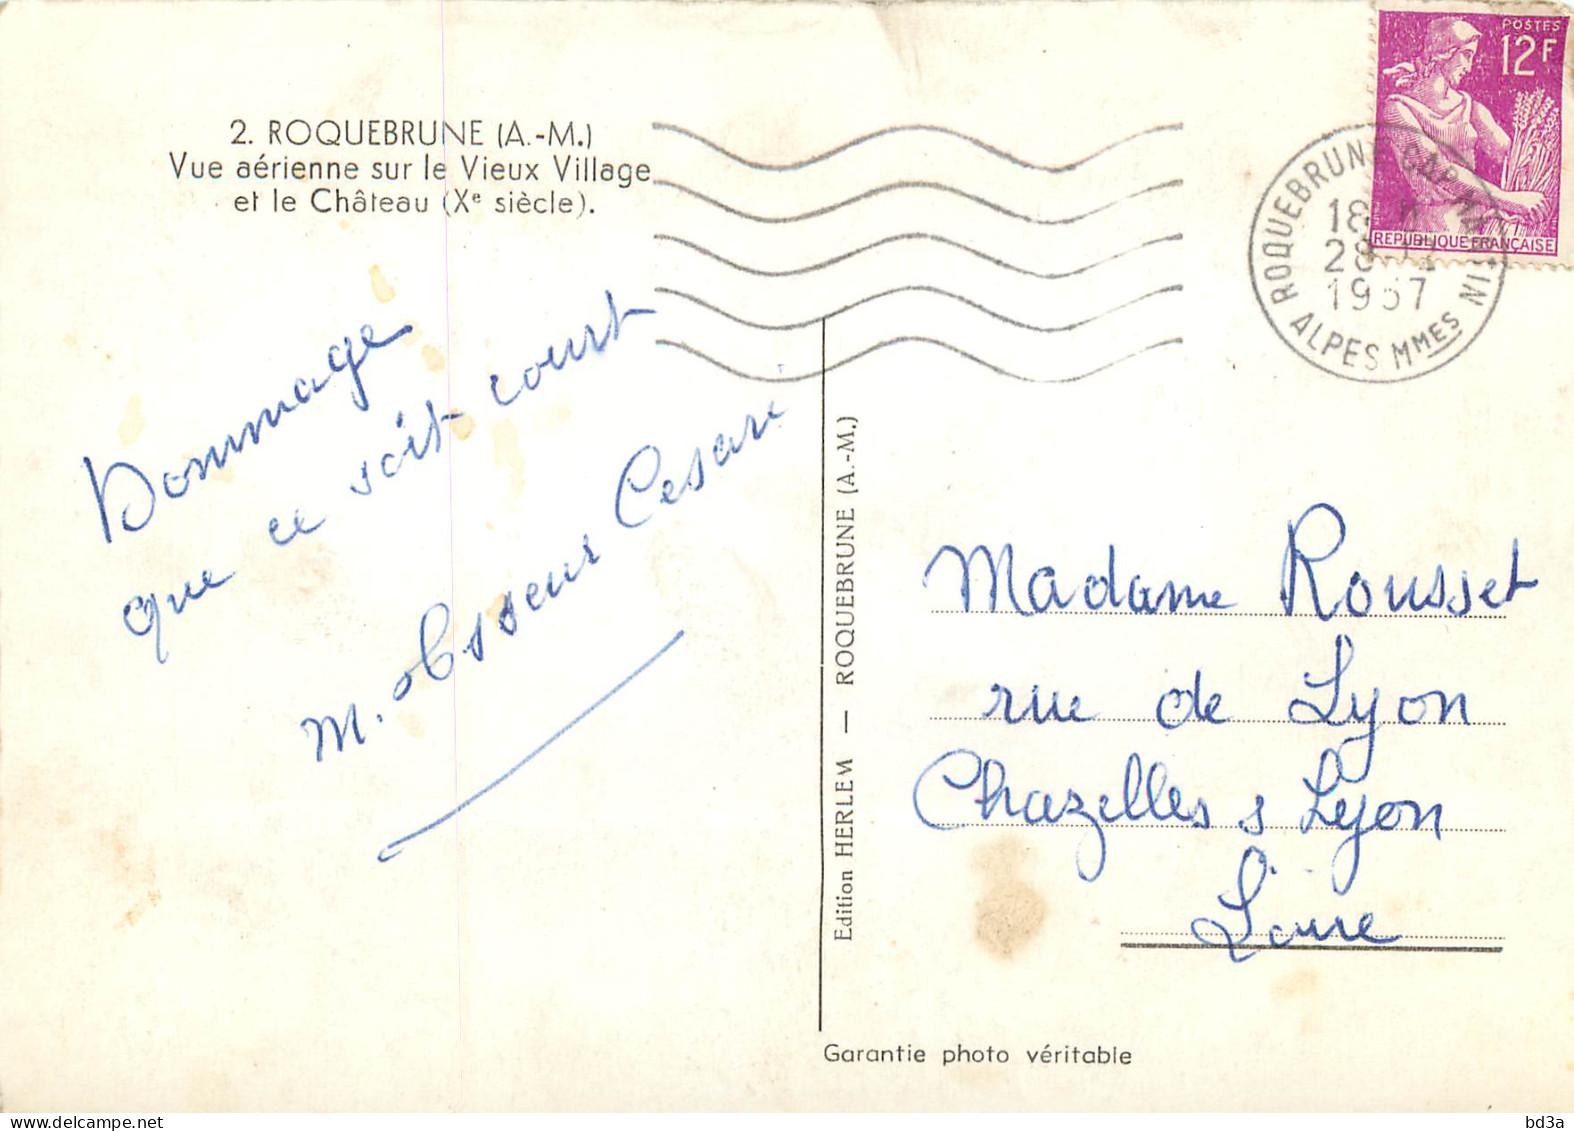 2. ROQUEBRUNE (A.-M.)
Vue aérienne sur le Vieux Village
et le Château (Xe siècle).
POSTES
12F
REPUBLIQUE FRANÇAISE
ROQUEBRUNE CAP MARTIN
18 H
28
1957
ALPES MMES
Dommage
que ce soit court
M. Cesari
Edition HERLEM — ROQUEBRUNE (A.-M.)
Madame Rousset
rue de Lyon
Chazelles s Lyon
Loire
Garantie photo véritable
bd3a